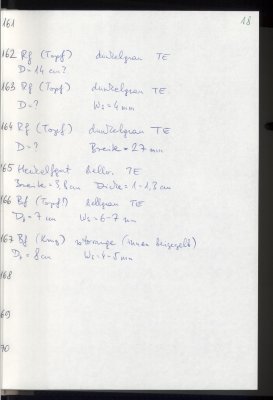 18
161
162 Rf (Topf) dunkelgrau TE
D = 14 cm?
163 Rf (Topf) dunkelgrau TE
D = ? Ws = 4 mm
164 Rf (Topf) dunkelgrau TE
D = ? Breite = 27 mm
165 Henkelfgmt hellor. TE
Breite = 3,8 cm Dicke = 1-1,3 cm
166 Bf (Topf?) hellgrau TE
D = 7 cm Ws = 6-7 mm
167 Bf (Krug) rotorange (innen beigegelb)
D = 8 cm Ws = 4-5 mm
168
69
70